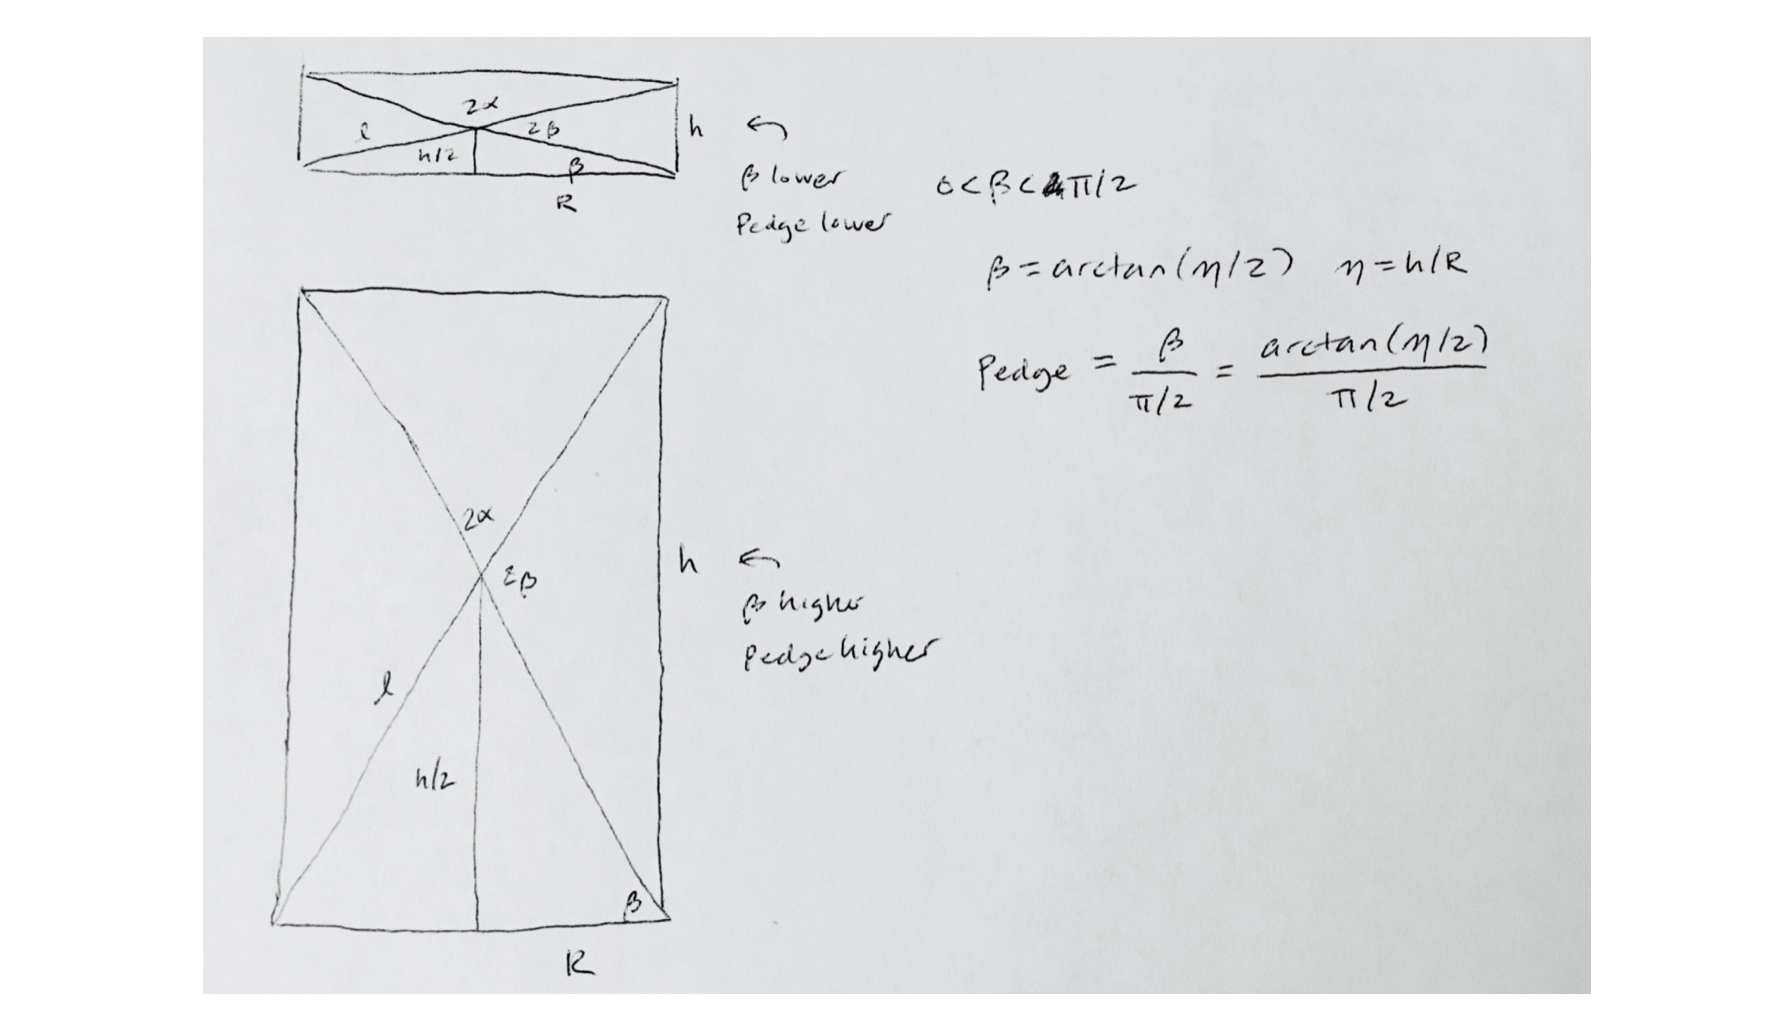 2α
l
2β
h
h/2
β
R
β lower
Pedge lower
0 < β < π/2
β = arctan(η/2) η = h/R
Pedge = β / π/2 = arctan(η/2) / π/2
2α
2β
h
β higher
Pedge higher
l
h/2
β
R